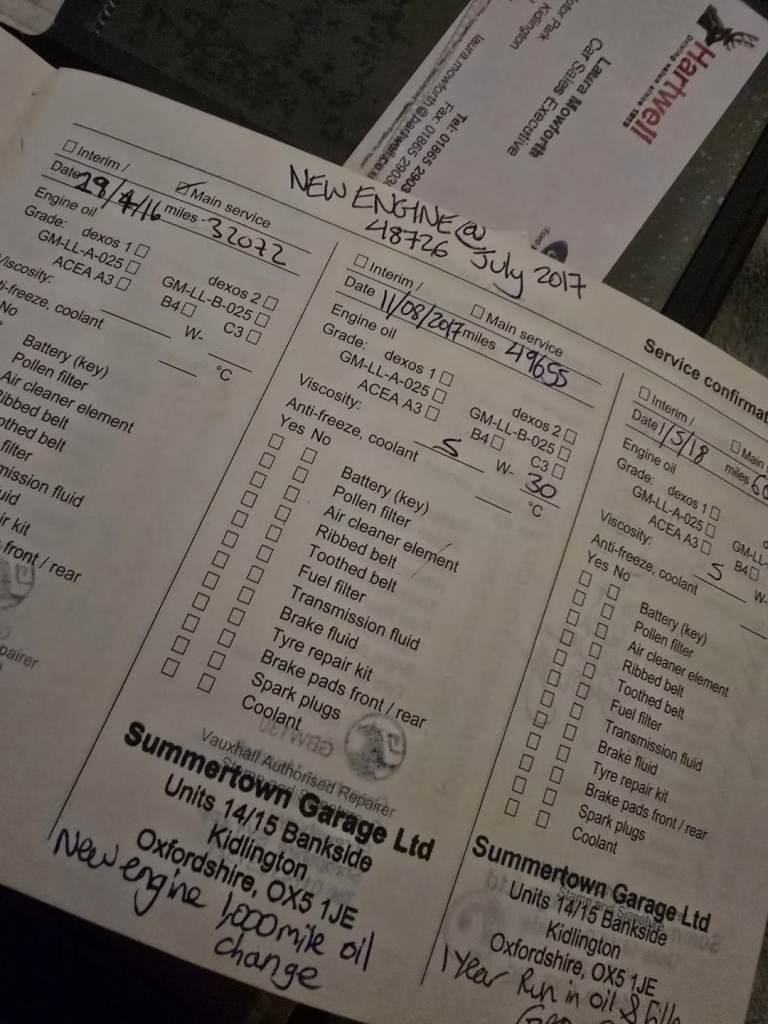 Hartwell
Driving value since 1919
Laura Mowforth
Car Sales Executive
Motor Park
Kidlington
Tel: 01865 2903
Fax: 01865 2903
laura.mowforth@hartwell.co
NEW ENGINE @
48726 July 2017
Service confirmat
☐ Interim / ☑ Main service
Date 29/4/16 miles 32072
Engine oil
Grade: dexos 1 ☐ dexos 2 ☐
GM-LL-A-025 ☐ GM-LL-B-025 ☐
ACEA A3 ☐ B4 ☐ C3 ☐
Viscosity: W-
ti-freeze, coolant °C
No
Battery (key)
Pollen filter
Air cleaner element
Ribbed belt
othed belt
filter
mission fluid
uid
ir kit
front / rear
pairer
☐ Interim / ☐ Main service
Date 11/08/2017 miles 49655
Engine oil
Grade: dexos 1 ☐ dexos 2 ☐
GM-LL-A-025 ☐ GM-LL-B-025 ☐
ACEA A3 ☐ B4 ☐ C3 ☐
Viscosity: 5 W- 30
Anti-freeze, coolant °C
Yes No
Battery (key)
Pollen filter
Air cleaner element
Ribbed belt
Toothed belt
Fuel filter
Transmission fluid
Brake fluid
Tyre repair kit
Brake pads front / rear
Spark plugs
Coolant
Vauxhall Authorised Repairer
Summertown Garage Ltd
Units 14/15 Bankside
Kidlington
Oxfordshire, OX5 1JE
New engine 1,000 mile oil
change
☐ Interim / ☐ Main
Date 1/5/18 miles 60
Engine oil
Grade: dexos 1 ☐ d
GM-LL-A-025 ☐ GM-LL-
ACEA A3 ☐ B4 ☐
Viscosity: 5 W-
Anti-freeze, coolant
Yes No
Battery (key)
Pollen filter
Air cleaner element
Ribbed belt
Toothed belt
Fuel filter
Transmission fluid
Brake fluid
Tyre repair kit
Brake pads front / rear
Spark plugs
Coolant
Summertown Garage Ltd
Units 14/15 Bankside
Kidlington
Oxfordshire, OX5 1JE
1 Year Run in oil &